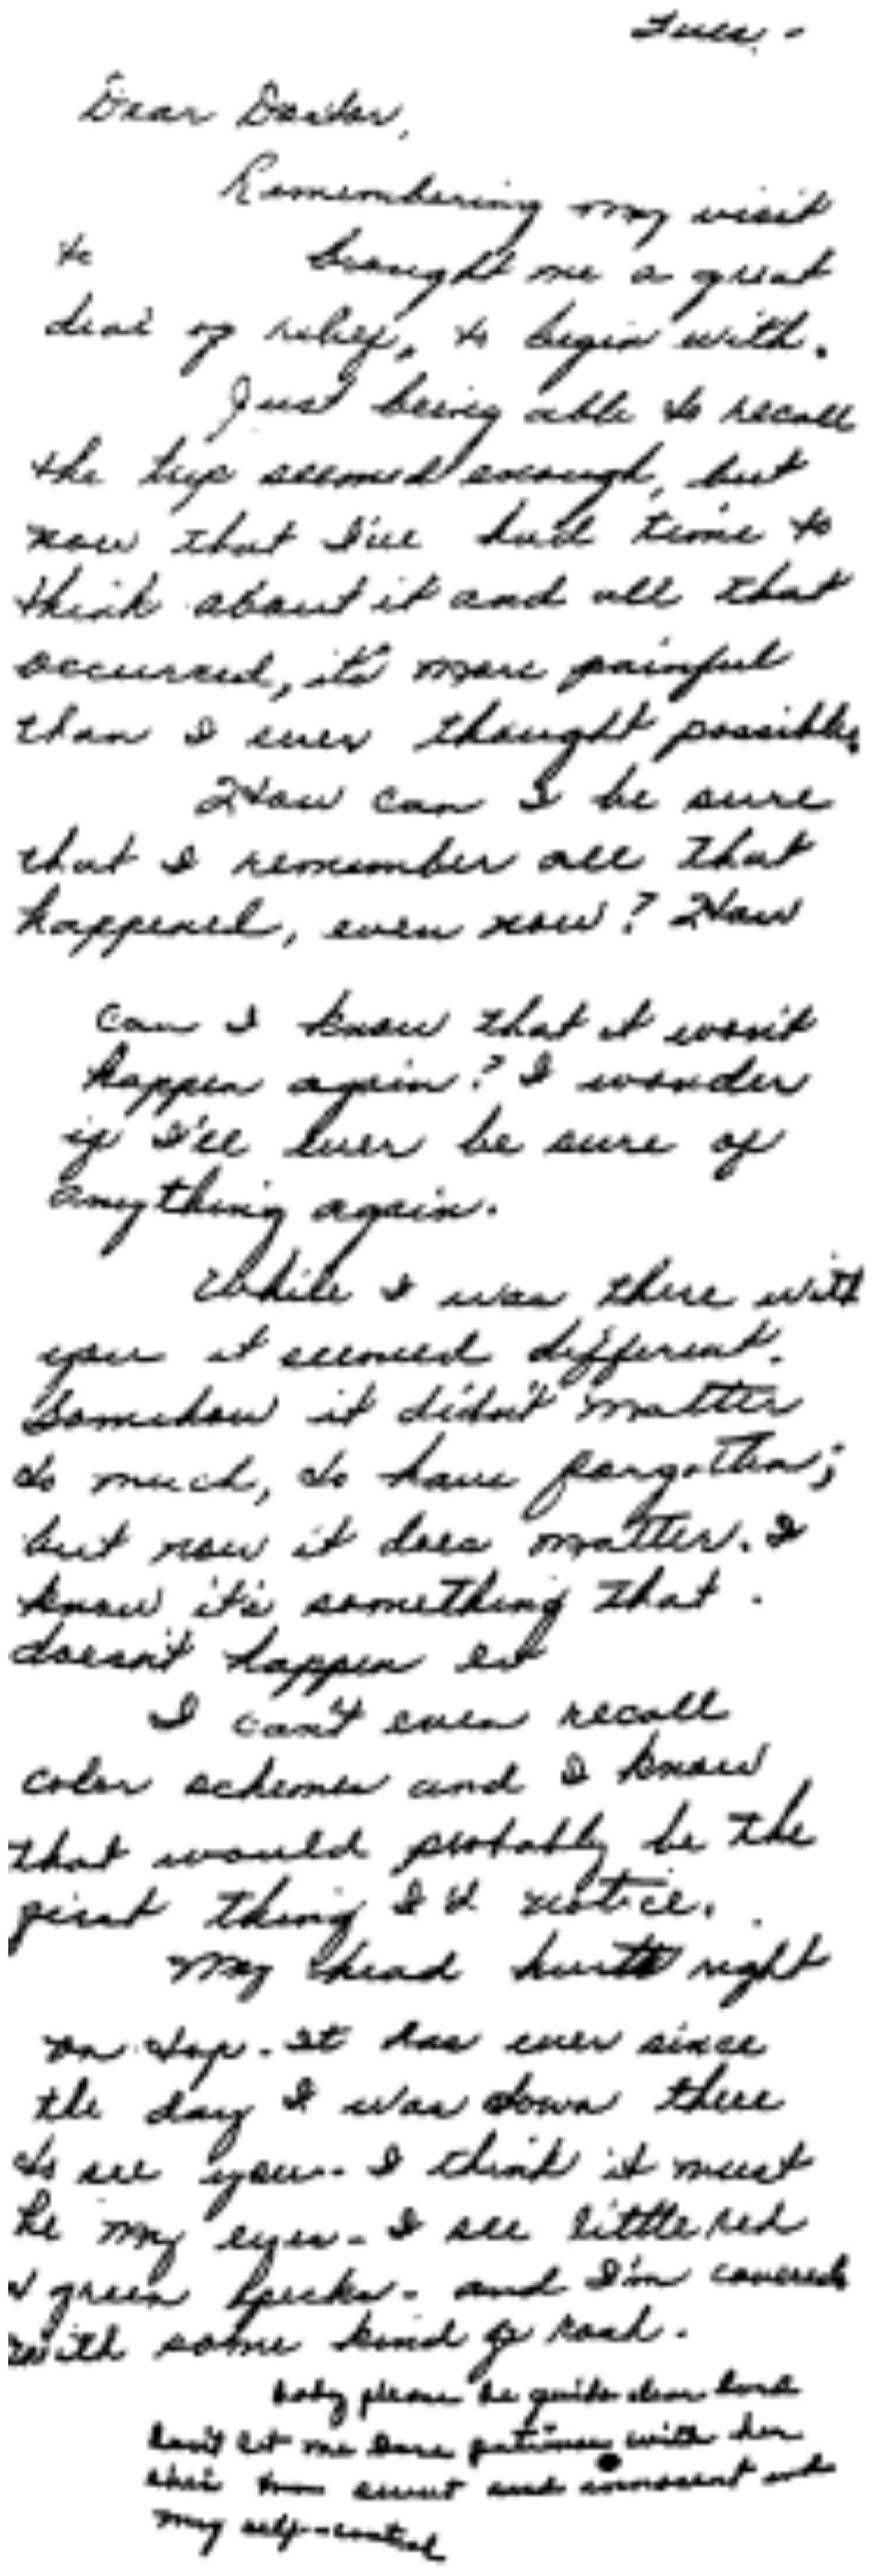 Tues. -
Dear Doctor,
Remembering my visit
to brought me a great
deal of relief, to begin with.
Just being able to recall
the trip seemed enough, but
now that I've had time to
think about it and all that
occurred, it's more painful
than I ever thought possible.
How can I be sure
that I remember all that
happened, even now? How
can I know that it won't
happen again? I wonder
if I'll ever be sure of
anything again.
While I was there with
you it seemed different.
Somehow it didn't matter
so much, to have forgotten;
but now it does matter. I
know it's something that
doesn't happen
I can't even recall
color schemes and I know
that would probably be the
first thing I'd notice.
My head hurts right
on top. It has ever since
the day I was down there
to see you. I think it must
be my eyes - I see little red
& green specks - and I'm covered
with some kind of rash.
baby please be quite dear lord
don't let me lose patience with her
she's too sweet and innocent and
my self-control